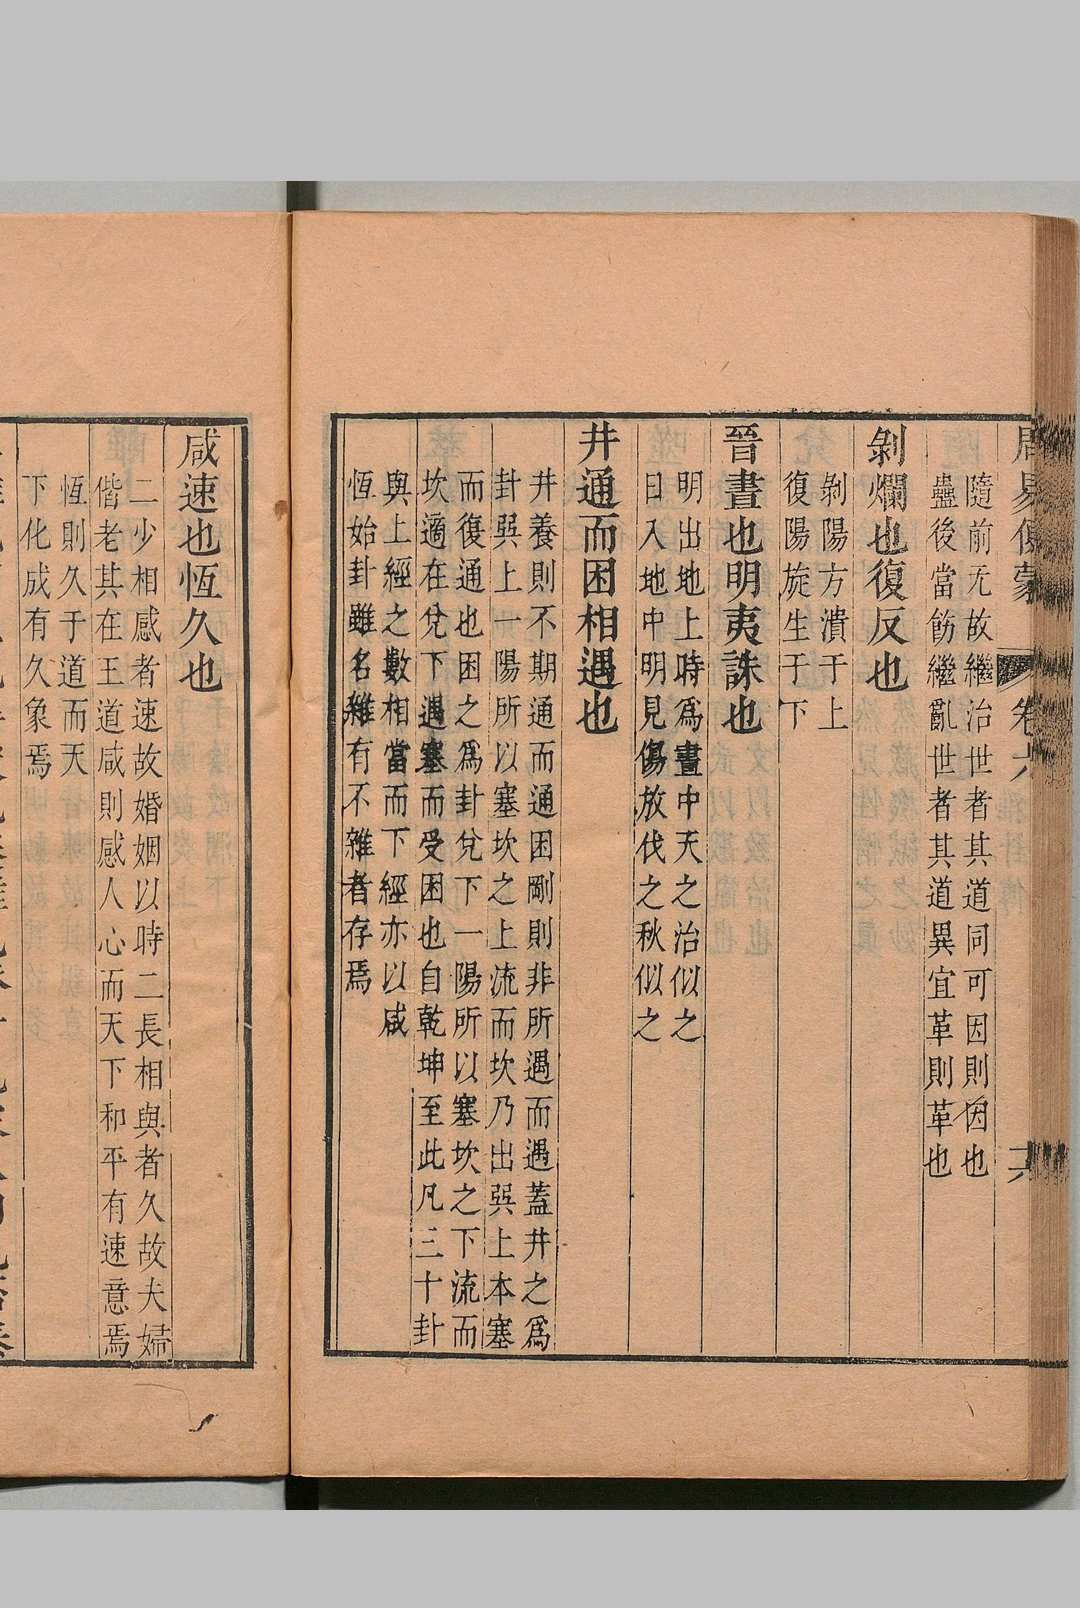 周易傳蒙 卷六 十六
隨前无故繼治世者其道同可因則因也
蠱後當飭繼亂世者其道異宜革則革也
剝爛也復反也
剝陽方潰于上
復陽旋生于下
晉晝也明夷誅也
明出地上時爲晝中天之治似之
日入地中明見傷放伐之秋似之
井通而困相遇也
井養則不期通而通困剛則非所遇而遇蓋井之爲
卦巽上一陽所以塞坎之上流而坎乃出巽上本塞
而復通也困之爲卦兌下一陽所以塞坎之下流而
坎適在兌下遇塞而受困也自乾坤至此凡三十卦
與上經之數相當而下經亦以咸
恆始卦雖名雜有不雜者存焉
咸速也恆久也
二少相感者速故婚姻以時二長相與者久故夫婦
偕老其在王道咸則感人心而天下和平有速意焉
恆則久于道而天
下化成有久象焉